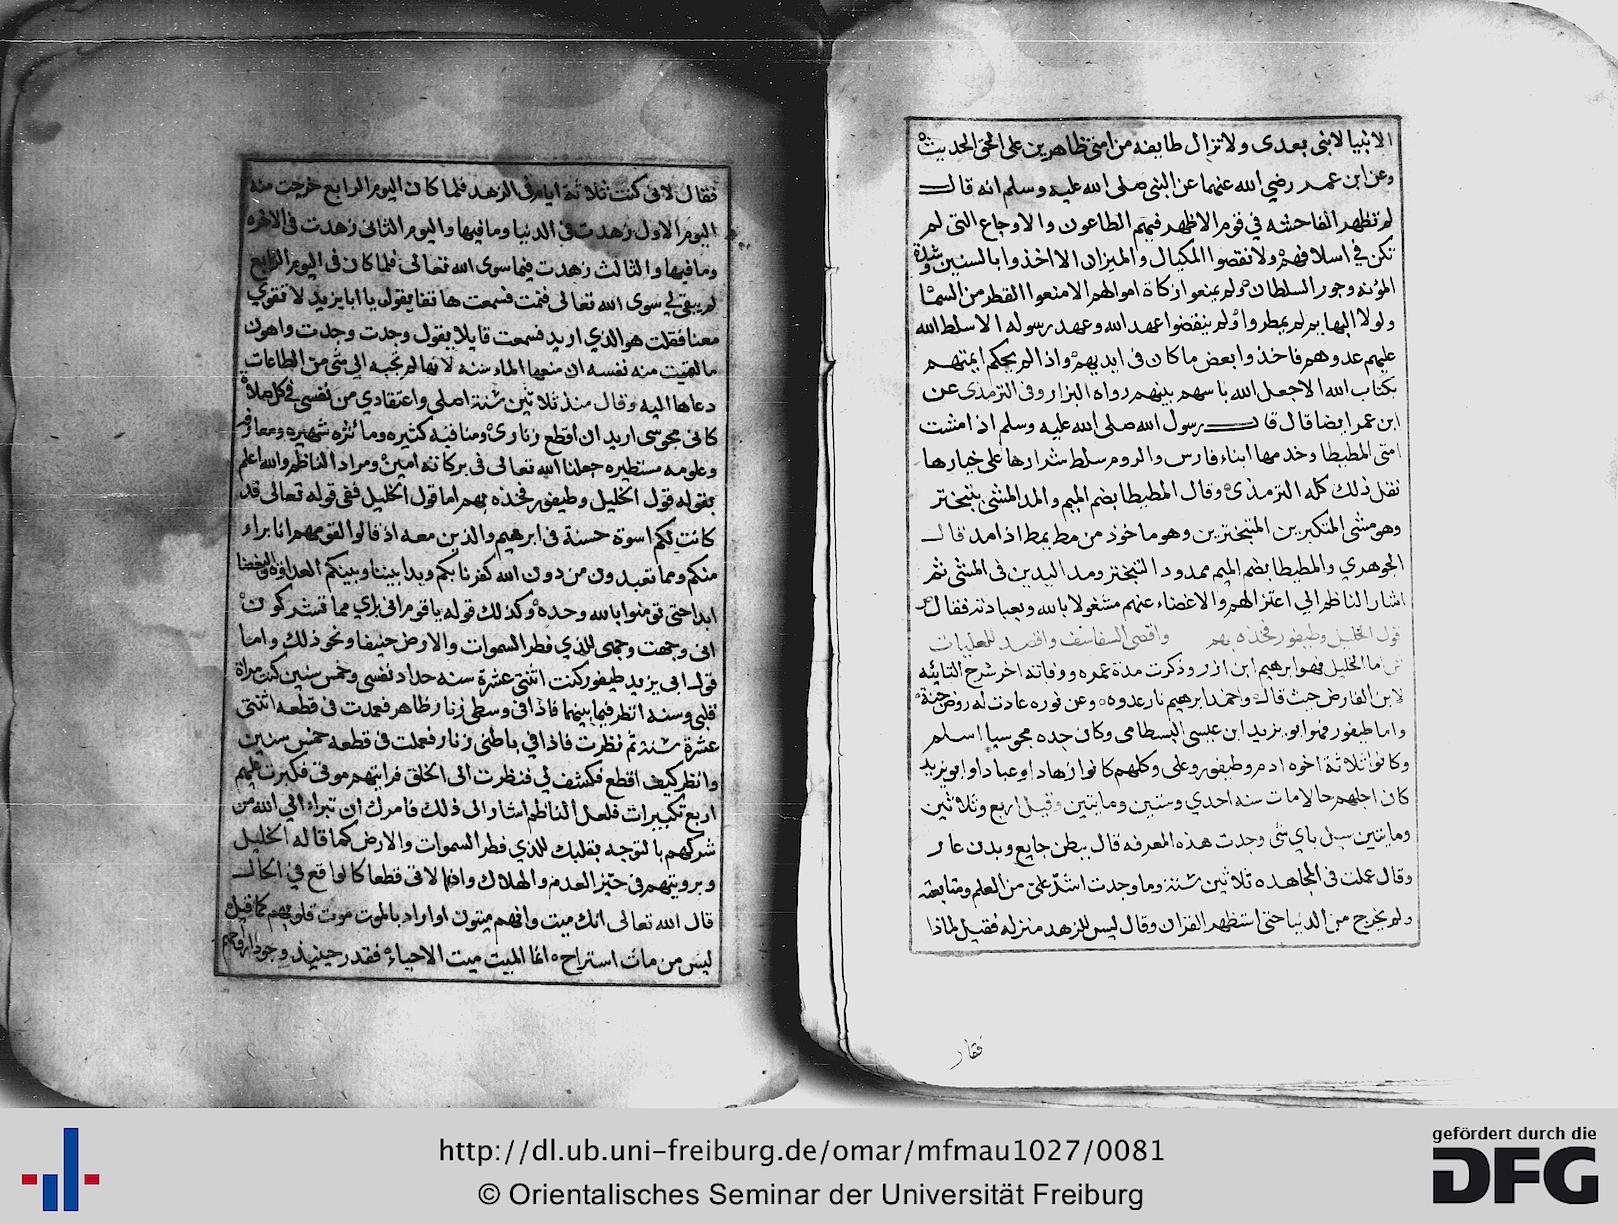 الانبيا لا نبى بعدى ولا تزال طايفه من امتى ظاهرين على الحق الحديث
وعن ابن عمر رضي الله عنهما عن النبى صلى الله عليه وسلم انه قال
لم تظهر الفاحشه في قوم الا ظهر فيهم الطاعون والاوجاع التى لم
تكن في اسلافهم ولا نقصوا المكيال والميزان الا اخذوا بالسنين وشدة
المؤنه وجور السلطان ولم يمنعوا زكاة اموالهم الا منعوا القطر من السما
ولولا البهايم لم يمطروا ولم ينقضوا عهد الله وعهد رسوله الا سلط الله
عليهم عدوهم فاخذوا بعض ما كان فى ايديهم واذا لم يحكم ايمتهم
بكتاب الله الا جعل الله باسهم بينهم رواه البزار وفى الترمذى عن
ابن عمر ايضا قال قال رسول الله صلى الله عليه وسلم اذا مشت
امتى المطيطا وخدمها ابناء فارس والروم سلط شرارها على خيارها
نقل ذلك كله الترمذى وقال المطيطا بضم الميم والمد المشى بتبختر
وهو مشى المتكبرين المتبخترين وهو ماخوذ من مط يمط اذا مد قال
الجوهري والمطيطا بضم الميم ممدود التبختر ومد اليدين فى المشى ثم
اشار الناظم الي اعتزالهم والاغضاء عنهم مشغولا بالله وبعبادته فقال
قول الخليل وطيفور فخذه بهم واقصى السفاسف واقصد للعليات
اما الخليل فهو ابرهيم ابن ازر وذكرت مدة عمره ووفاته اخر شرح التايئه
لابن الفارض حيث قال واخمد ابرهيم نار عدوه وعن نوره عادت له روض جنة
واما طيفور فهو ابو يزيد ابن عيسى البسطامى وكان جده مجوسيا اسلم
وكانوا ثلاثة اخوه ادم وطيفور وعلى وكلهم كانوا زهادا وعبادا وابو يزيد
كان اجلهم حالا مات سنه احدي وستين ومايتين وقيل اربع وثلاثين
ومايتين سيل باي شى وجدت هذه المعرفه قال ببطن جايع وبدن عار
وقال عملت فى المجاهده ثلاثين سنة وما وجدت اشد على من العلم ومتابعته
ولم يخرج من الدنيا حتى استظهر القران وقال ليس للزهد منزله فقيل لماذا
فقال
فقال لانى كنت ثلاثة ايام فى الزهد فلما كان اليوم الرابع خرجت منه
اليوم الاول زهدت فى الدنيا وما فيها واليوم الثانى زهدت فى الاخره
وما فيها والثالث زهدت فيما سوى الله تعالى فلما كان فى اليوم الرابع
لم يبقى لي سوى الله تعالى فهمت فسمعت هاتفا يقول يا ابا يزيد لا تقوي
معنا فقلت هو الذي اريد فسمعت قايلا يقول وجدت وجدت واهون
ما لقيت منه نفسه ان منعها الماء سنه لانها لم تجبه الى شى من الطاعات
دعاها اليه وقال منذ ثلاثين سنة اصلى واعتقادي من نفسى فى كل صلاة
كانى مجوسى اريد ان اقطع زنارى ومناقبه كثيره وماثره شهيره ومعارفه
وعلومه مستطيره جعلنا الله تعالى فى بركاته امين ومراد الناظم والله اعلم
بقوله قول الخليل وطيفور فخذه بهم اما قول الخليل ففى قوله تعالى قد
كانت لكم اسوة حسنة فى ابرهيم والذين معه اذ قالوا لقومهم انا براء
منكم ومما تعبدون من دون الله كفرنا بكم وبدا بيننا وبينكم العداوة والبغضا
ابدا حتى تومنوا بالله وحده وكذلك قوله يا قوم انى براي مما تشركون
انى وجهت وجهى للذي فطر السموات والارض حنيفا ونحو ذلك واما
قول ابى يزيد طيفور كنت اثنتى عشرة سنه حداد نفسى وخمس سنين كنت مراة
قلبى وسنه انظر فيما بينهما فاذا فى وسطى زنار ظاهر فعمدت فى قطعه اثنتى
عشرة سنة ثم نظرت فاذا في باطنى زنار فعملت فى قطعه خمس سنين
وانظر كيف اقطع فكشف لي فنظرت الى الخلق فرايتهم موتى فكبرت عليهم
اربع تكبيرات فلعل الناظم اشار الى ذلك فامرك ان تبراء الي الله من
شركهم بالتوجه بقلبك للذي فطر السموات والارض كما قاله الخليل
وبرويتهم فى حيز العدم والهلاك واذا لاقى قطعا كالواقع في الحال
قال الله تعالى انك ميت وانهم ميتون او اراد بالموت موت قلوبهم كما قيل
ليس من مات استراح انما الميت ميت الاحياء فقدر حينيذ وجود ارواحهم
http://dl.ub.uni-freiburg.de/omar/mfmau1027/0081
© Orientalisches Seminar der Universität Freiburg
gefördert durch die
DFG